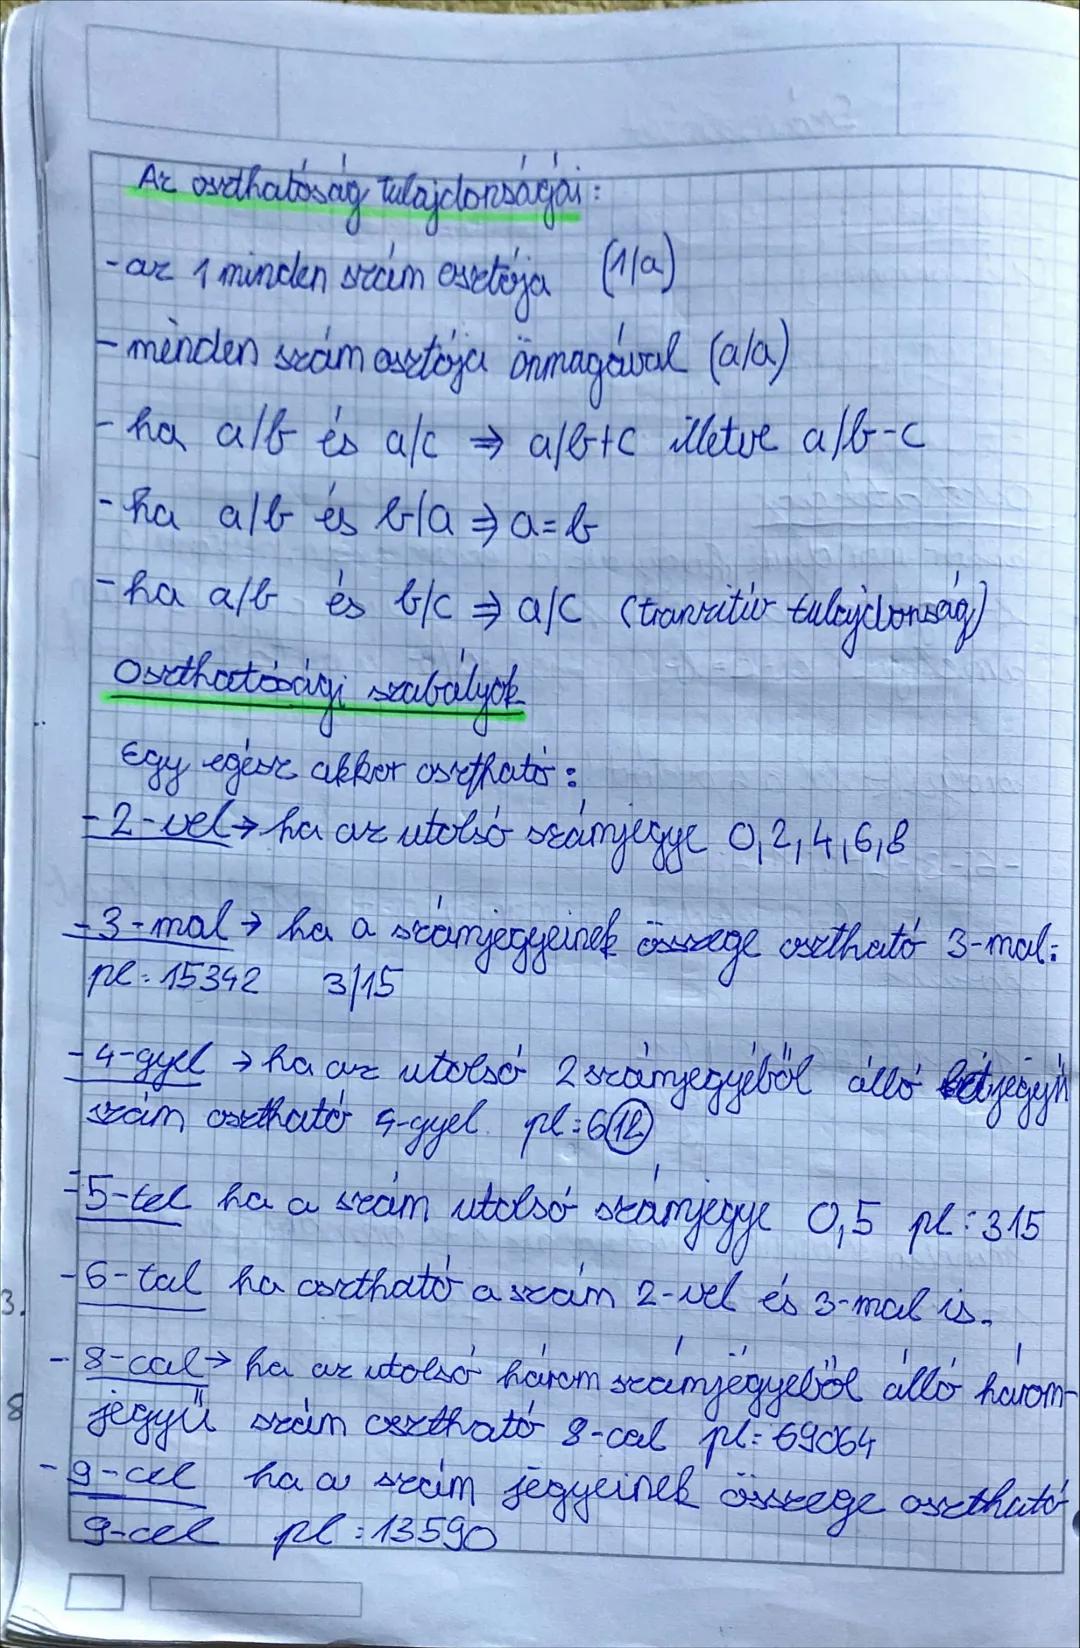 Az oszthatóság tulajdonságai:
- az 1 minden szám osztója (1/a)
- minden szám osztója önmagával (a/a)
- ha a/b és a/c ⇒ a/b+c illetve a/b-c
- ha a/b és b/a ⇒ a=b
- ha a/b és b/c ⇒ a/c (tranzitív tulajdonság)
Oszthatósági szabályok
Egy egész akkor osztható:
- 2-vel → ha az utolsó számjegye 0,2,4,6,8
- 3-mal → ha a számjegyeinek összege osztható 3-mal:
pl: 15342 3/15
- 4-gyel → ha az utolsó 2 számjegyéből álló kétjegyű
szám osztható 4-gyel. pl: 612
- 5-tel ha a szám utolsó számjegye 0,5 pl: 315
- 6-tal ha osztható a szám 2-vel és 3-mal is.
3.
- 8-cal → ha az utolsó három számjegyéből álló három-
8
jegyű szám osztható 8-cal pl: 69064
- 9-cel ha a szám jegyeinek összege osztható
9-cel pl: 13590